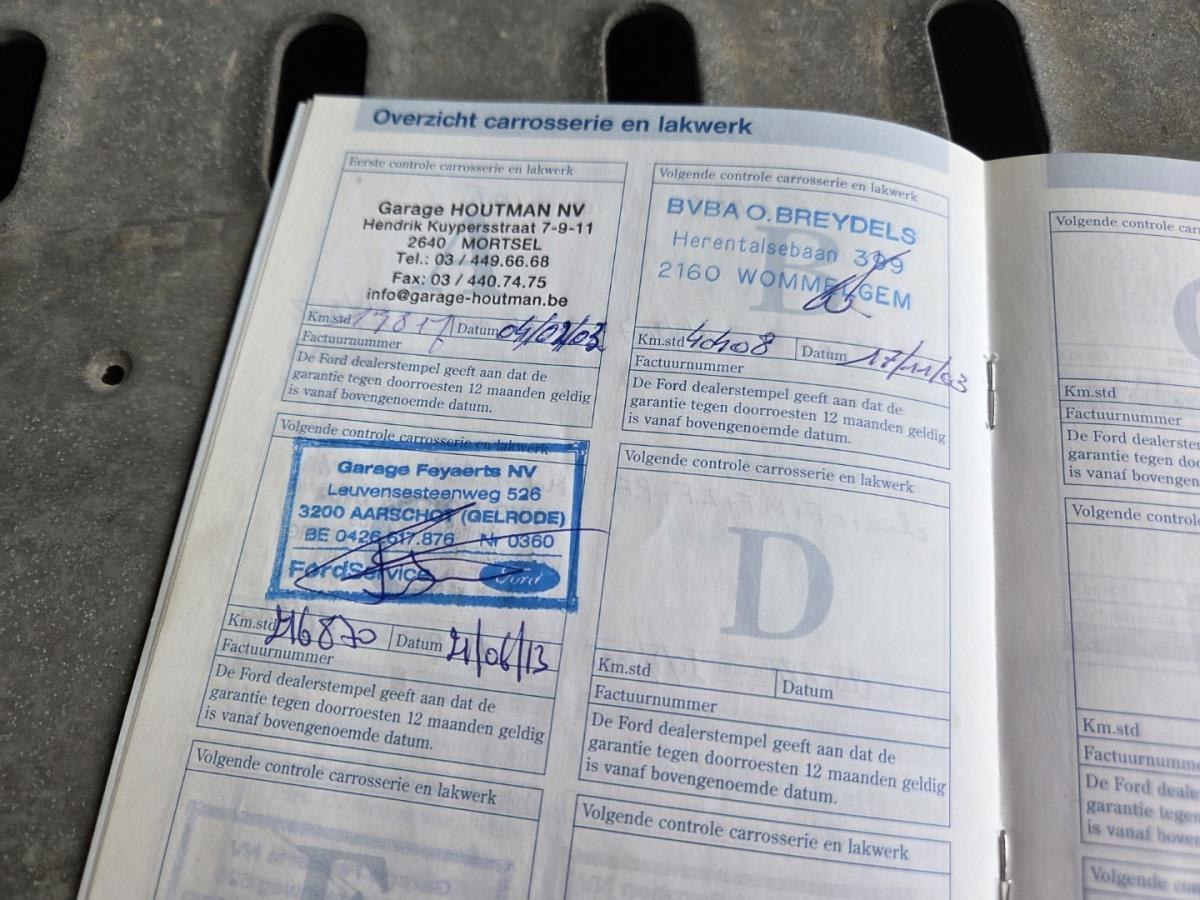 Overzicht carrosserie en lakwerk
Eerste controle carrosserie en lakwerk
Garage HOUTMAN NV
Hendrik Kuypersstraat 7-9-11
2640 MORTSEL
Tel.: 03 / 449.66.68
Fax: 03 / 440.74.75
info@garage-houtman.be
Km.std 19817 Datum 04/02/03
Factuurnummer
De Ford dealerstempel geeft aan dat de
garantie tegen doorroesten 12 maanden geldig
is vanaf bovengenoemde datum.
Volgende controle carrosserie en lakwerk
BVBA O. BREYDELS
Herentalsebaan 399
2160 WOMMELGEM
B
Km.std 40408 Datum 17/11/03
Factuurnummer
De Ford dealerstempel geeft aan dat de
garantie tegen doorroesten 12 maanden geldig
is vanaf bovengenoemde datum.
Volgende controle carrosserie en lakwerk
Garage Feyaerts NV
Leuvensesteenweg 526
3200 AARSCHOT (GELRODE)
BE 0426.617.876 Nr 0360
FordService Ford
Km.std 216870 Datum 21/06/13
Factuurnummer
De Ford dealerstempel geeft aan dat de
garantie tegen doorroesten 12 maanden geldig
is vanaf bovengenoemde datum.
Volgende controle carrosserie en lakwerk
D
Km.std Datum
Factuurnummer
De Ford dealerstempel geeft aan dat de
garantie tegen doorroesten 12 maanden geldig
is vanaf bovengenoemde datum.
Volgende controle carrosserie en lakwerk
Volgende controle carrosserie en lakwerk
Volgende controle car
Km.std
Factuurnummer
De Ford dealerste
garantie tegen
is vanaf boveng
Volgende contro
Km.std
Factuurnumme
De Ford deale
garantie tege
is vanaf bove
Volgende con